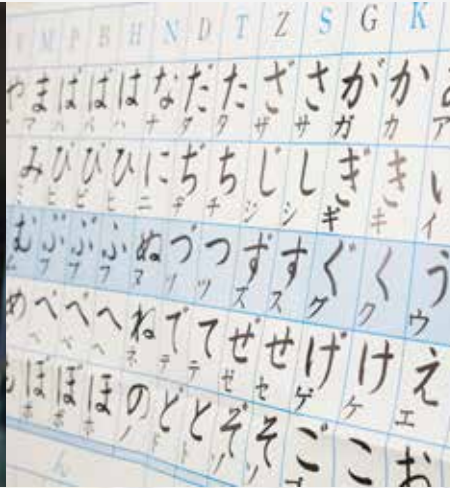 Y M P B H N D T Z S G K
や ま ぱ ば は な だ た ざ さ が か
マ パ バ ハ ナ ダ タ ザ サ ガ カ ア
み ぴ び ひ に ぢ ち じ し ぎ き い
ミ ピ ビ ヒ ニ ヂ チ ジ シ ギ キ イ
む ぷ ぶ ふ ぬ づ つ ず す ぐ く う
ム プ ブ フ ヌ ヅ ツ ズ ス グ ク ウ
め ぺ べ へ ね で て ぜ せ げ け え
ヘ ネ デ テ ゼ セ ゲ ケ エ
ぽ ぼ ほ の ど と ぞ そ ご こ お
ポ ボ ホ ノ ド ト ゾ ソ
ん